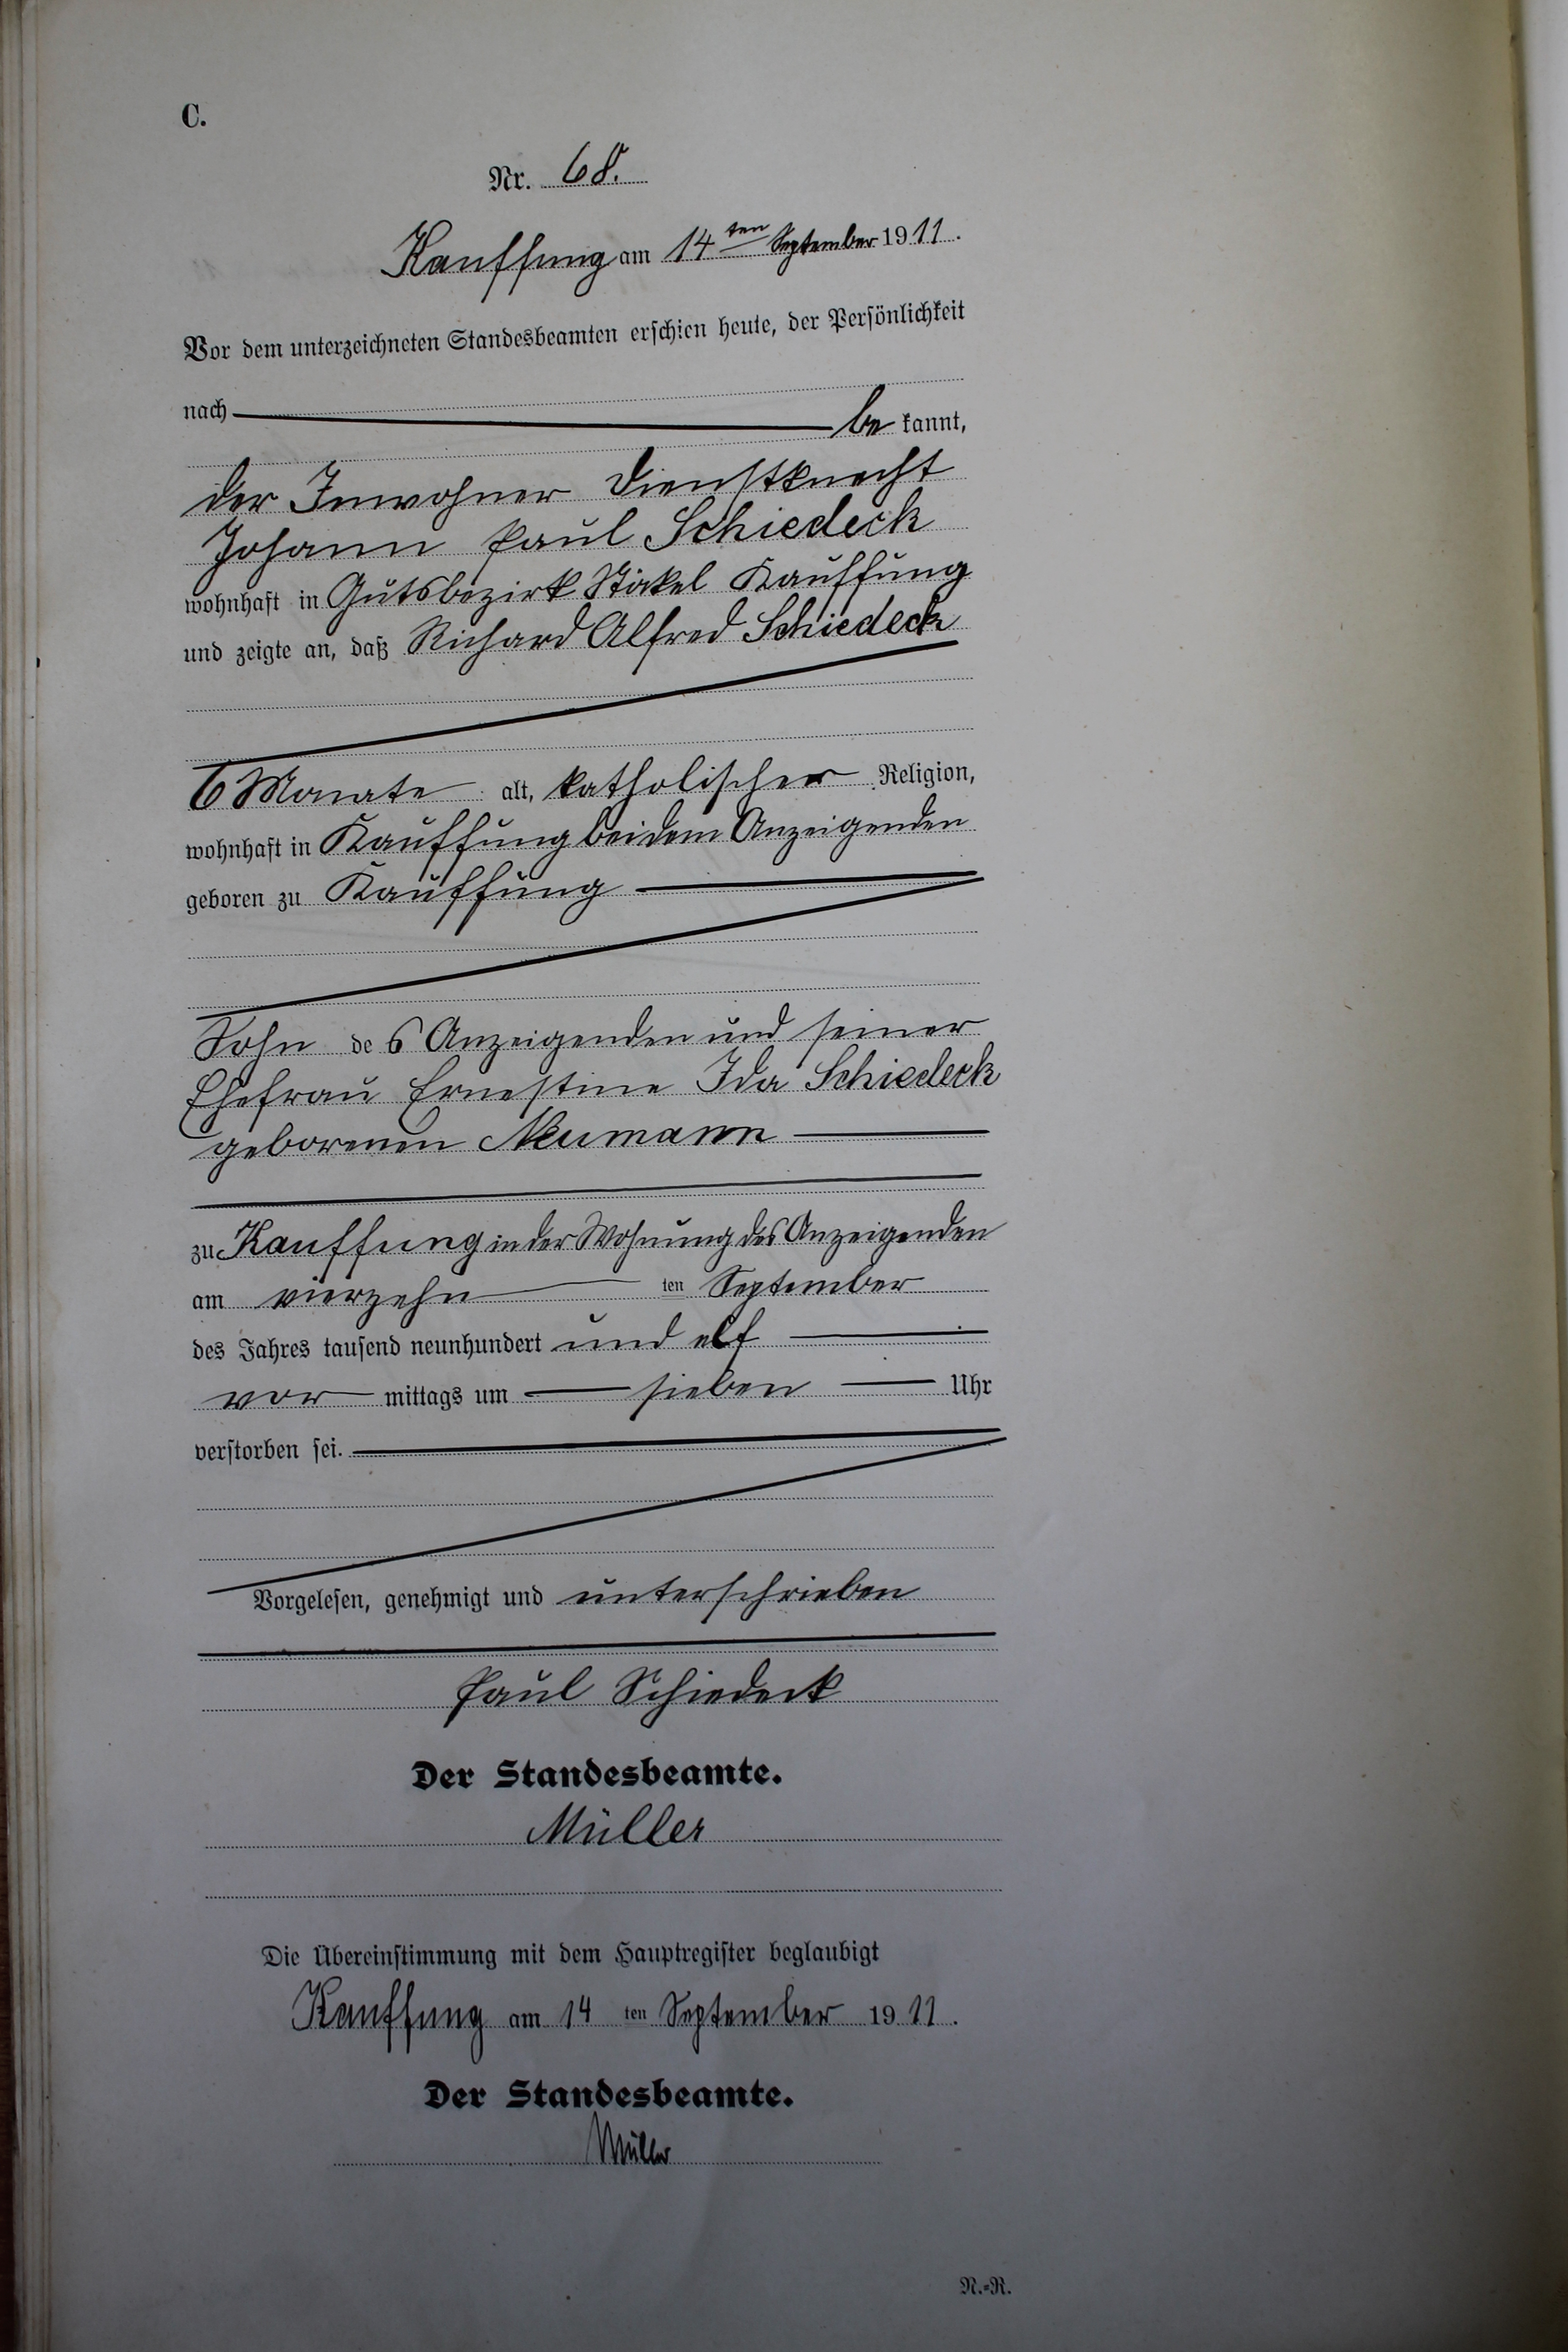 C.
Nr. 68.
Kauffung am 14ten September 1911.
Vor dem unterzeichneten Standesbeamten erschien heute, der Persönlichkeit
nach be kannt,
der Inwohner Dienstknecht
Johann Paul Schiedeck
wohnhaft in Gutsbezirk Stöckel Kauffung
und zeigte an, daß Richard Alfred Schiedeck
6 Monate alt, katholischer Religion,
wohnhaft in Kauffung bei dem Anzeigenden
geboren zu Kauffung
Sohn des Anzeigenden und seiner
Ehefrau Ernestine Ida Schiedeck
geborenen Neumann
zu Kauffung in der Wohnung des Anzeigenden
am vierzehn ten September
des Jahres tausend neunhundert und elf
vor mittags um sieben Uhr
verstorben sei.
Vorgelesen, genehmigt und unterschrieben
Paul Schiedeck
Der Standesbeamte.
Müller
Die Übereinstimmung mit dem Hauptregister beglaubigt
Kauffung am 14 ten September 1911.
Der Standesbeamte.
Müller
N.=R.